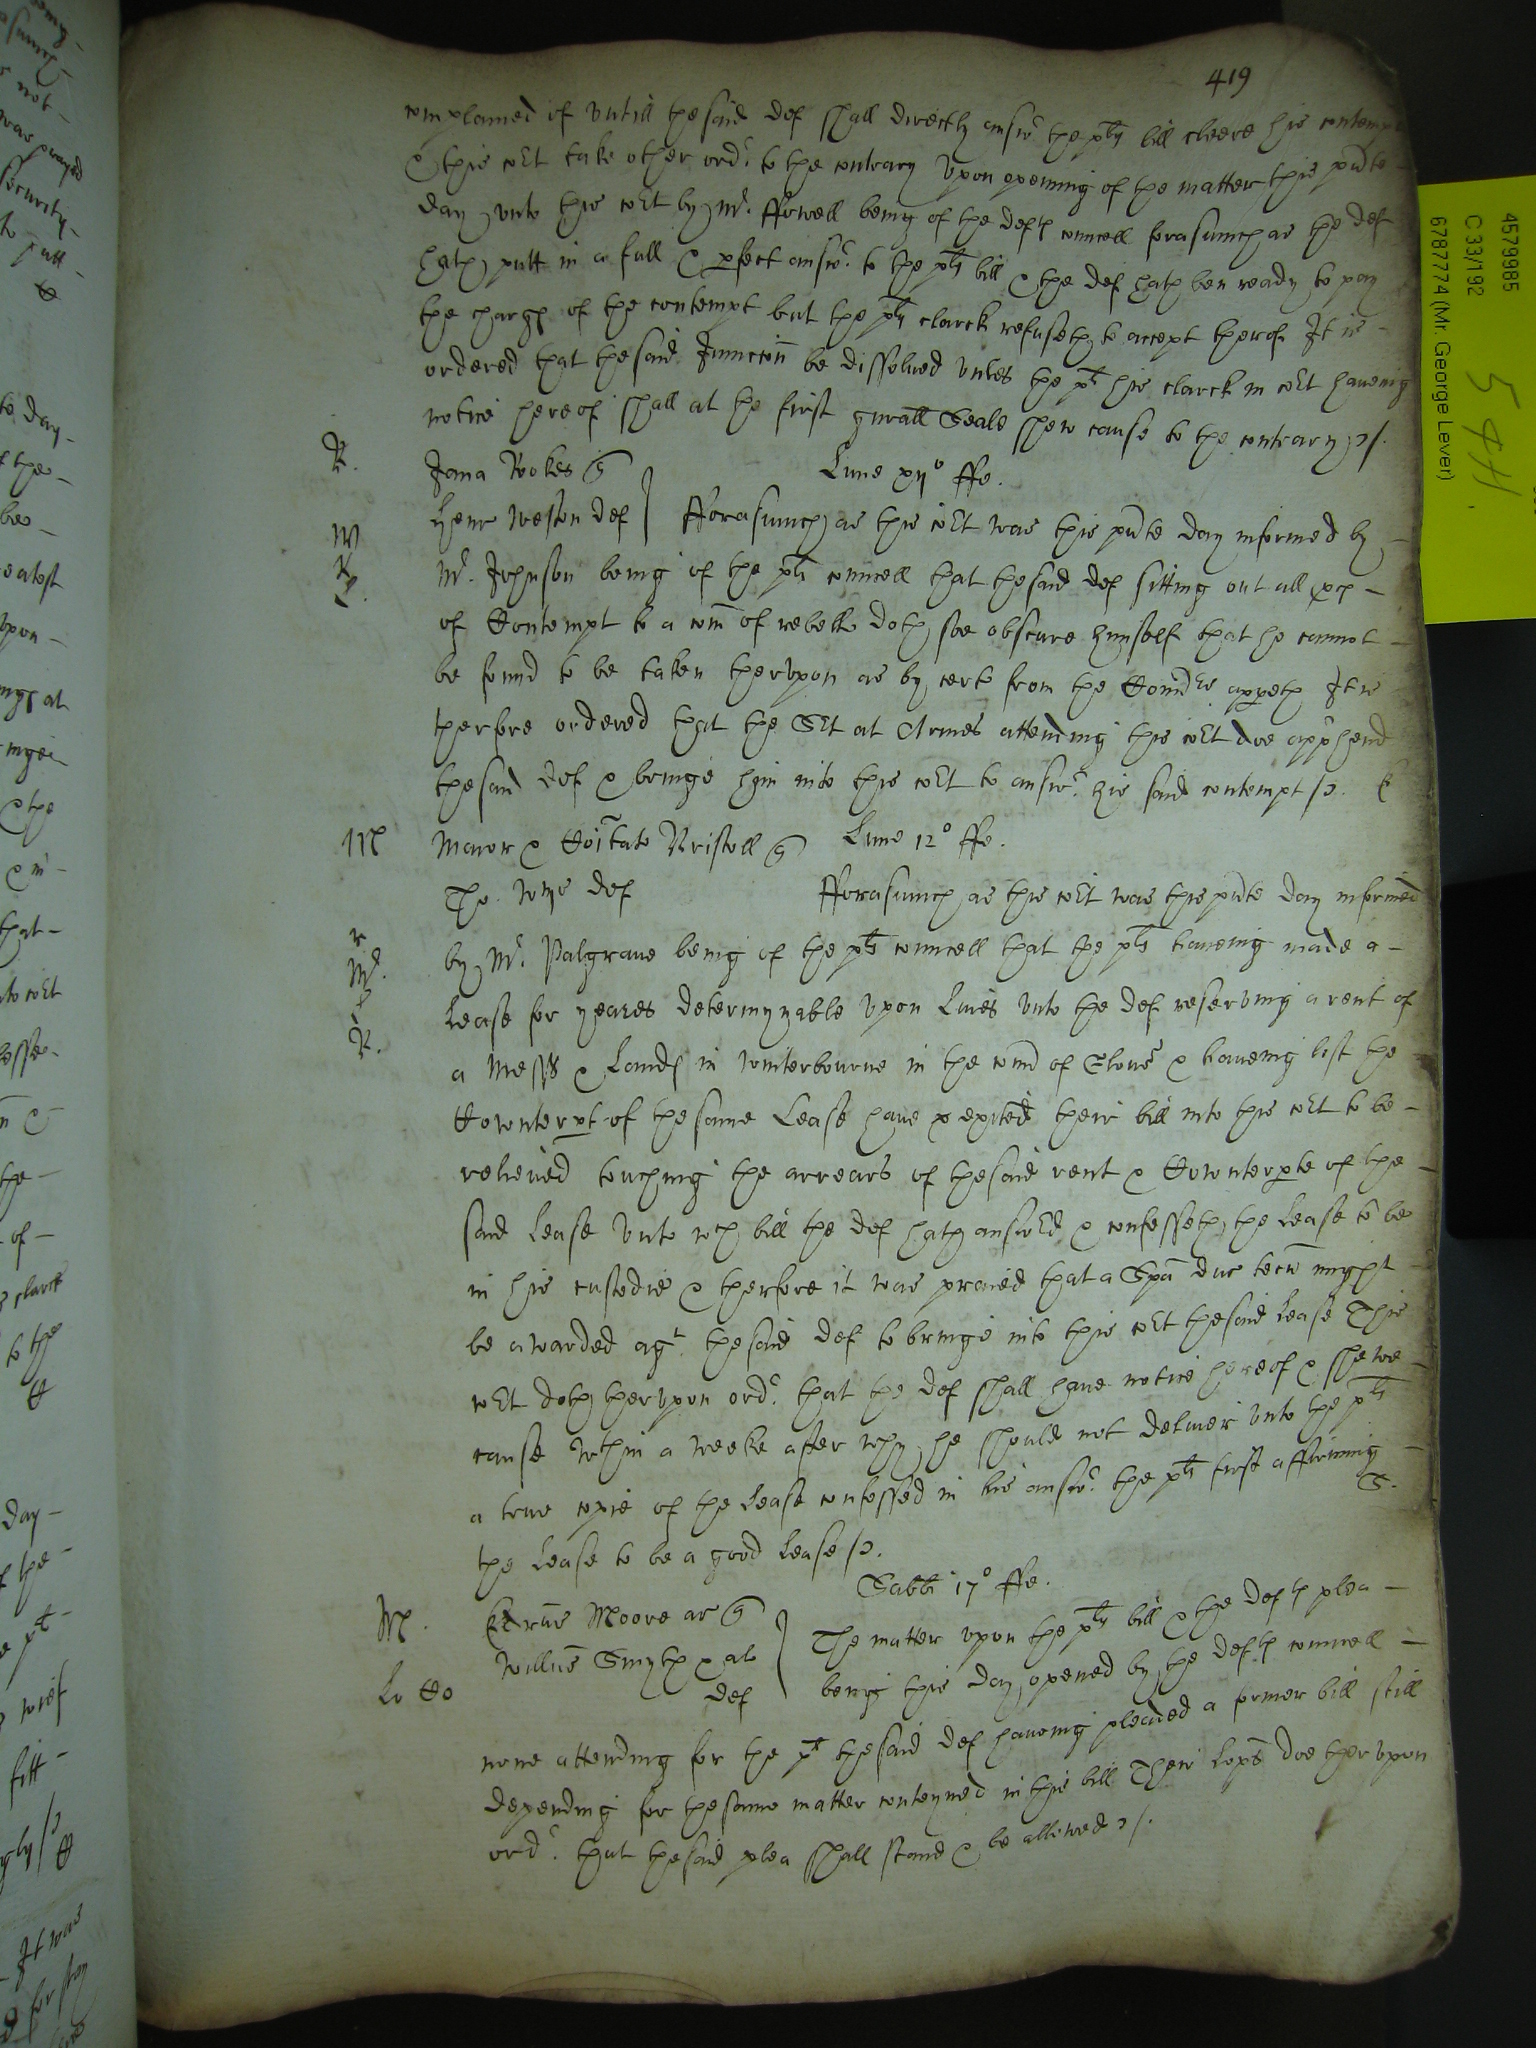 419
complained of vntill the said def shall directly answr the plts bill cleere his contempt
& this cort take other ordr to the contrary Vpon opening of the matter this pnte
day vnto this cort by Mr. ffowell being of the defts councell forasmuch as the def
hath putt in a full & pfect answr. to the plts bill & the def hath ben ready to pay
the charges of the contempt but the plts clarck refuseth to accept therof It is
ordered that the said Iniunccon be dissolued vnles the plt his clarck in cort haueing
notice hereof shall at the first gnrall Seale shew cause to the contrary
R.
Jana Rookes
Lune xijo ffe.
Henr Weston def
fforasmuch as this cort was this pnte day informed by
W
R
Mr. Johnson being of the plts councell that the said def sitting out all pces
of Contempt to a com of rebello doth soe obscure himself that he cannot
be found to be taken therupon as by certe from the Comrs appeth It is
therfore ordered that the Srt at Armes attending this cort doe apphend
the said def & bringe him into this cort to answr. his said contempt
M
Maior & Coitate Bristoll
Lune 12o ffe.
Tho. Wye def
fforasmuch as this cort was this pnte day informed
by Mr. Palgraue being of the plts councell that the plts haueing made a
r
Mr.
Lease for yeares determynable vpon Liues vnto the def reserving a rent of
R.
a Mess & Landes in Winterbourne in the com of Glouc & haueing lost the
Counterpt of the same Lease haue exited their bill into this cort to be
relieued touching the arreares of the said rent & Counterpte of the
said Lease Vnto wch bill the def hath answred & confesseth the Lease to be
in his custodie & therfore it was praied that a Spa duc tecu might
be awarded agt. the said def to bringe into this cort the said Lease This
cort doth therupon ordr. that the def shall haue notice hereof & shewe
cause wthin a weeke after why he should not deliuer vnto the plts
a true copie of the Lease confessed in his answr. the plts first affirming
S.
the Lease to be a good Lease
Sabbi 17o ffe.
M.
Moore ar
Willus Smyth & al
def
The matter vpon the plts bill & the defts plea
Lo Co
being this day opened by the defts councell
none attending for the plt the said def haueing pleaded a former bill still
depending for the same matter conteyned in this bill Their Lops doe therupon
ordr. that the said plea shall stand & be allowed
4579985
C 33/192
6787774 (Mr. George Lever)